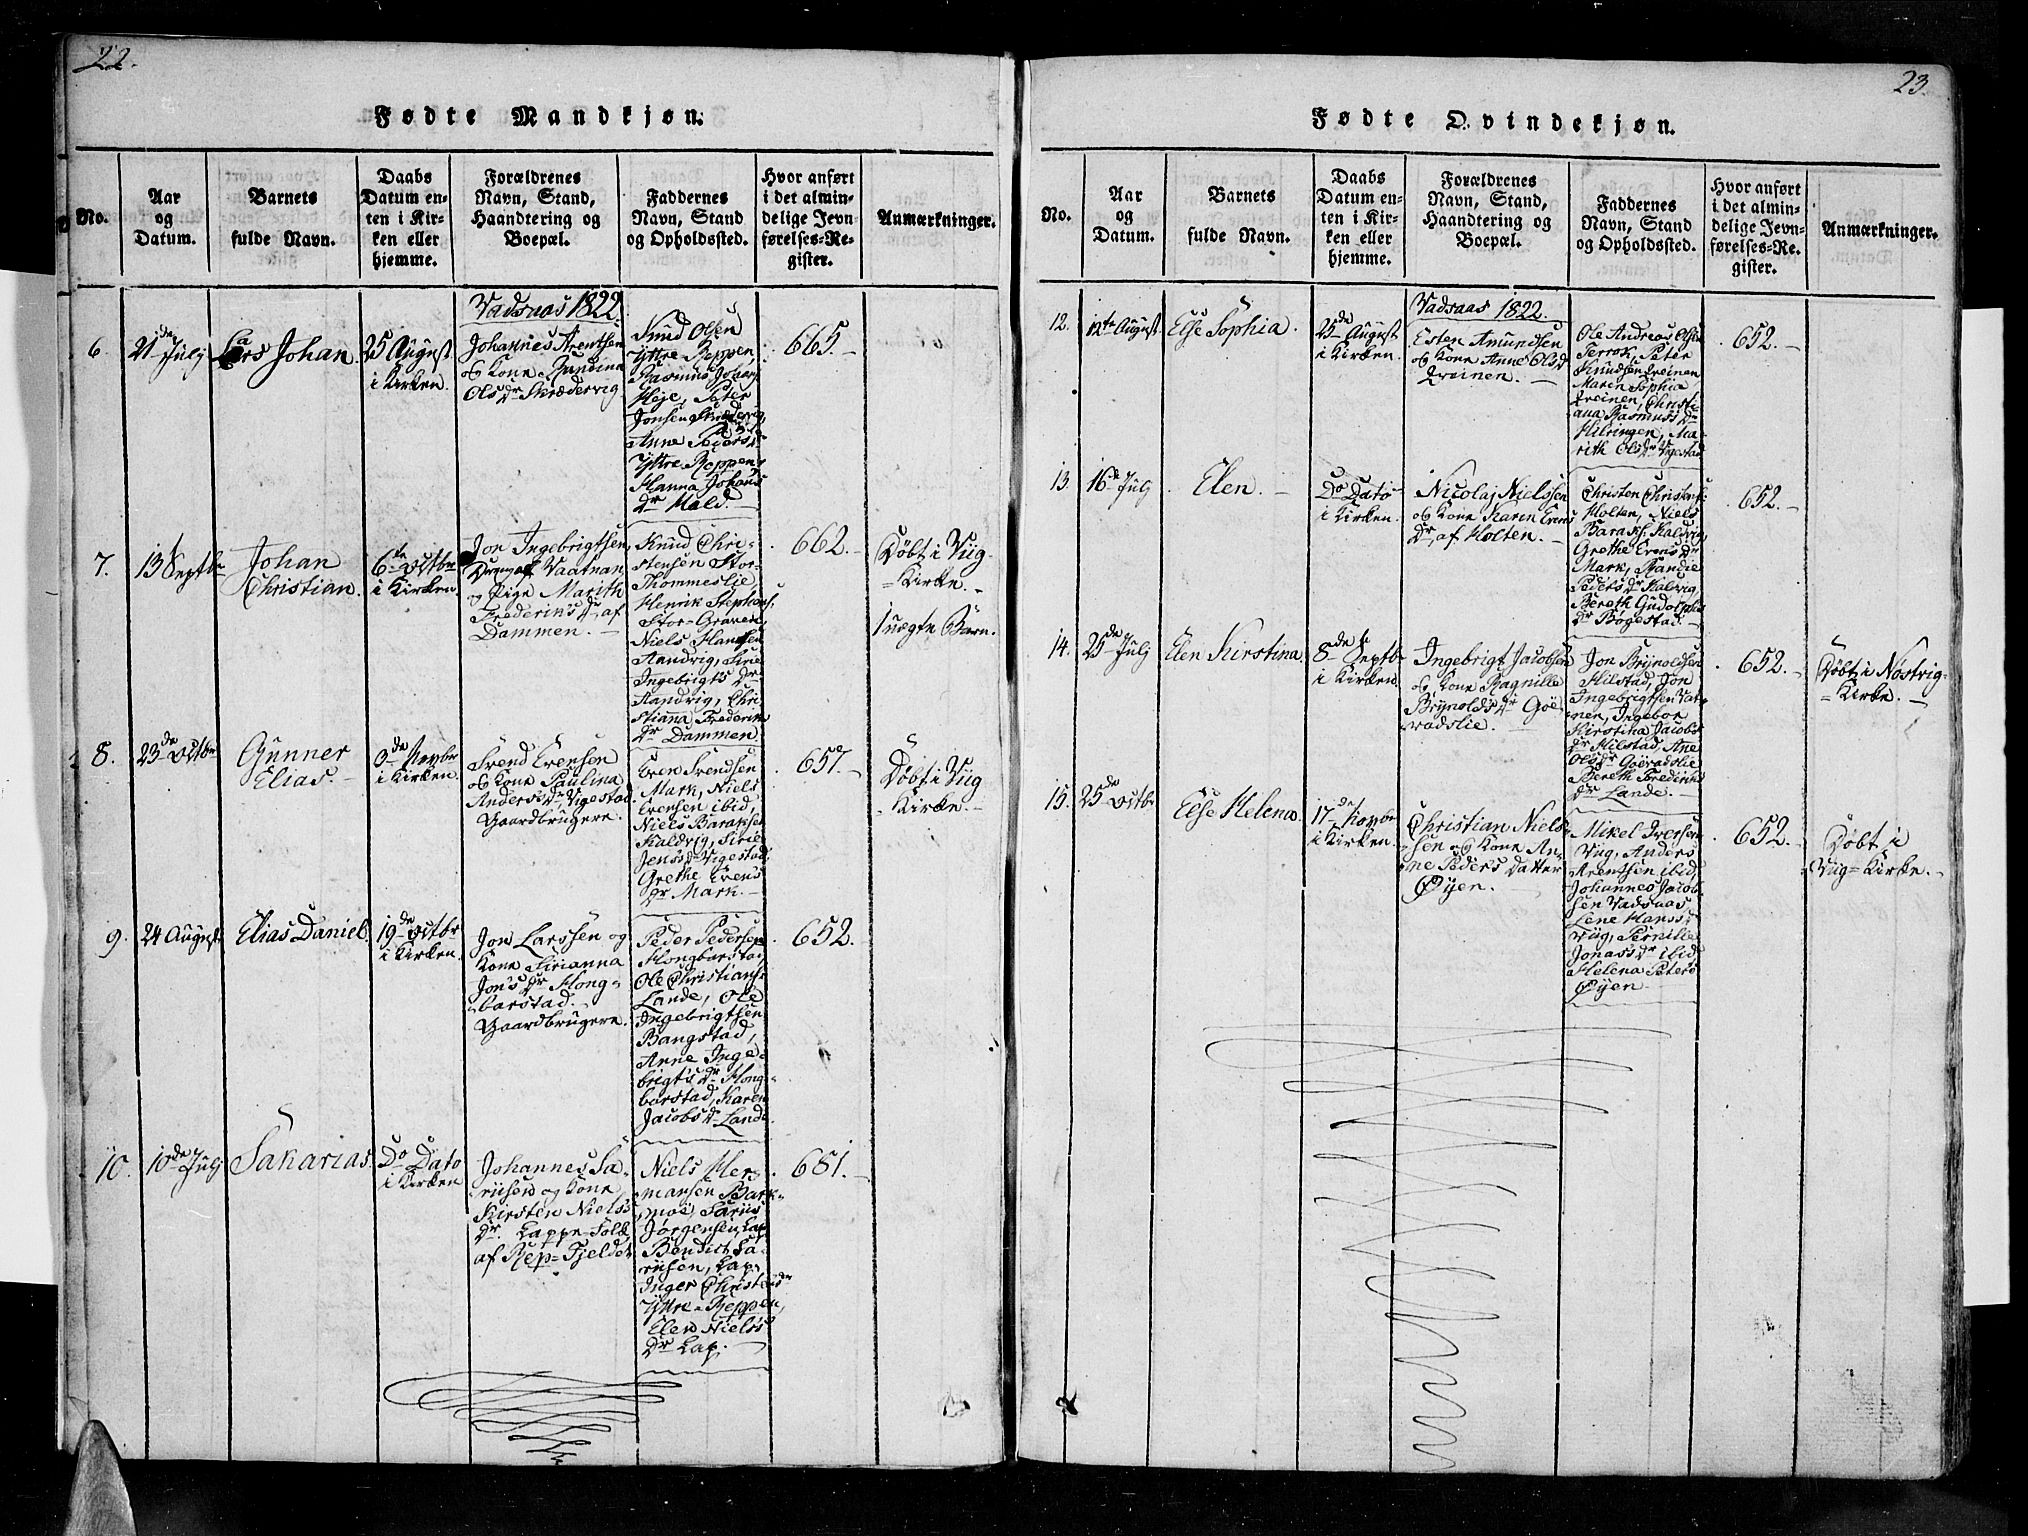 22.
Fødte Mandkjøn.
No.
Aar
og
Datum.
Barnets
fulde Navn.
Daabs
Datum en-
ten i Kir-
ken eller
hjemme.
Forældrenes
Navn, Stand,
Haandtering og
Boepæl.
Faddernes
Navn, Stand
og Opholdssted.
Hvor anført
i det almin-
delige Jevn-
førelses-Re-
gister.
Anmærkninger.
Vadsaas 1822.
6
21de July
Lars Johan.
25 August
i Kirken.
Johannes Arentsen
og Kone Gundina
Olsdr Skrædervig
Knud Olsen
Yttre Reppen,
Rasmus Johans
Heje, Peter
Jonsen Skrædervig,
Anne Pedersdr
Yttre Reppen,
Hanna Johans
dr Hald.
665.
7.
13 Septbr
Johan
Christian.
6de Octbr
i Kirken.
Jon Ingebrigtsen
Dreng af Vaatnan
og Pige Marith
Frederiksdr af
Dammen.
Knud Chri-
stensen Stor-
Thommeslie,
Henrik Stephans.
Stor-Graven,
Niels Hansen
Aandvig, Sine
Ingebrigtsdr
Aandvig, Chri-
stianna Frederiks
dr Dammen
662.
Døbt i Vug-
=Kirke.
Uægte Barn.
8.
23de Octbr
Gunner
Elias.
3de Novbr
i Kirken.
Svend Evensen
og Kone Paulina
Andersdr, Vigestad
Gaardbrugere.
Even Svendsen
Mark, Niels
Evensen ibid,
Niels Baraksen
Kaldvig, Siri
Jensdr Vigestad,
Grethe Evens
dr Mark.
657.
Døbt i Vug
Kirke.
9.
24 August
Elias Daniel.
19de Octbr
i Kirken.
Jon Larssen og
Kone Sirianna
Jonsdr Hong-
barstad.
Gaardbrugere.
Peder Pedersen
Hongbarstad,
Ole Christians.
Lande, Ole
Ingebrigtsen
Bangstad,
Anne Inge-
brigtsdr Hong-
barstad, Karen
Jacobsdr Lande
652.
10.
10de July
Sakarias.
Do Dato
i Kirken
Johannes Sa-
riisen og Kone
Kirsten Niels
dr. Lappe-Folk
af Rep=Fjeldet
Niels Her-
mansen Bark-
moe, Sariis
Jørgensen, Lap
Bendict Sa-
riisen, Lap,
Inger Christensdr
Yttre-Reppen,
Elen Niels
dr Lap.
681.
23.
Fødte Qvindekjøn.
No.
Aar
og
Datum.
Barnets
fulde Navn.
Daabs
Datum en-
ten i Kir-
ken eller
hjemme.
Forældrenes
Navn, Stand,
Haandtering og
Boepæl.
Faddernes
Navn, Stand
og Opholdssted.
Hvor anført
i det almin-
delige Jevn-
førelses-Re-
gister.
Anmærkninger.
Vadsaas 1822.
12.
12te August
Else Sophia.
25de August
i Kirken.
Esten Amundsen
og Kone Anne Olsd
Qveinen.
Ole Andreas Olsen
Terrok, Peter
Knudsen Qveinen,
Maren Sophia
Qveinen, Christi-
ana Rasmusdr
Hilringen, Ma-
rith Olsdr Vigestad
652.
13.
16de July
Elen.
Do Dato
i Kirken.
Nicolaj Nielssen
og Kone Karen Evens
dr, af Holten.
Christen Christens.
Holten, Niels
Baraks. Kaldvig,
Grethe Evensdr
Mark, Randie
Pedersdr Kalvig,
Bereth Gudolphs
dr Bøgestad.
652.
14.
25de July
Elen Kirstina
8de Septbr
i Kirken.
Ingebrigt Jacobsen
og Kone Ragnille
Brynoldsdr Goe-
vadslie.
Jon Brynoldsen
Hilstad, Jon
Ingebrigtsen Vat-
nen, Ingebor
Kirstina Jacobs
dr Hilstad, Ane
Olsdr Goevadslie
Bereth Fredriks
dr Lande.
652.
Døbt i Nostvig-
=Kirke.
15.
25de Octbr
Else Helena
17de Novbr
i Kirken.
Christian Niels-
sen og Kone An-
ne Peders datter
Øyen.
Mikel Iversen
Vug, Anders
Arentsen ibid,
Johannes Jacob-
sen Vadsaas
Lene Hansd.
Vug, Pernille
Jonasdr ibid
Helena Peters
Øyen.
652.
Døbt i
Vug=Kirke.